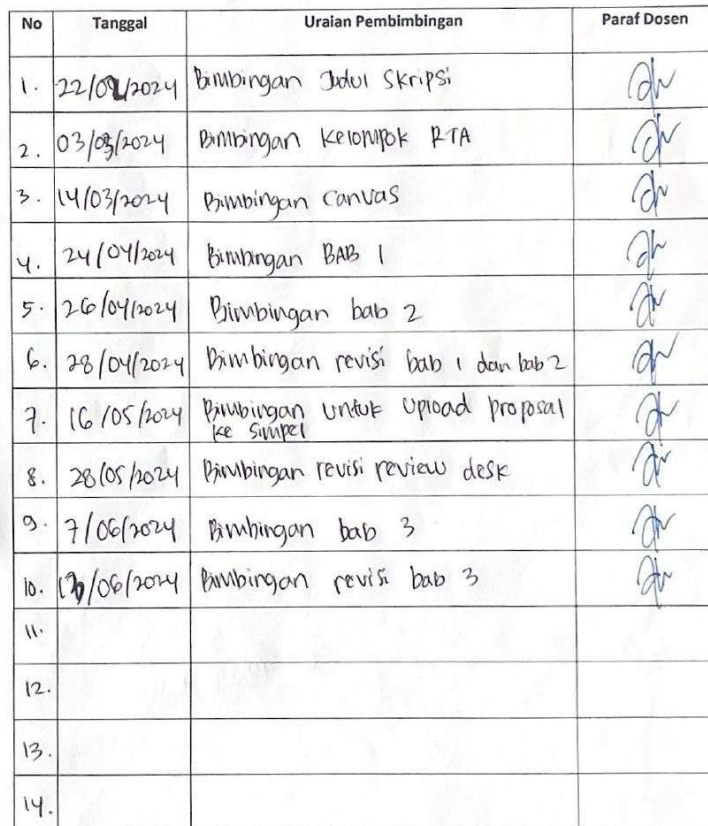 No Tanggal Uraian Pembimbingan Paraf Dosen
1. 22/02/2024 Bimbingan Judul Skripsi
2. 03/03/2024 Bimbingan Kelompok RTA
3. 14/03/2024 Bimbingan Canvas
4. 24/04/2024 Bimbingan BAB 1
5. 26/04/2024 Bimbingan bab 2
6. 28/04/2024 Bimbingan revisi bab 1 dan bab 2
7. 16/05/2024 Bimbingan untuk upload proposal
ke simpel
8. 28/05/2024 Bimbingan revisi review desk
9. 7/06/2024 Bimbingan bab 3
10. /06/2024 Bimbingan revisi bab 3
11.
12.
13.
14.